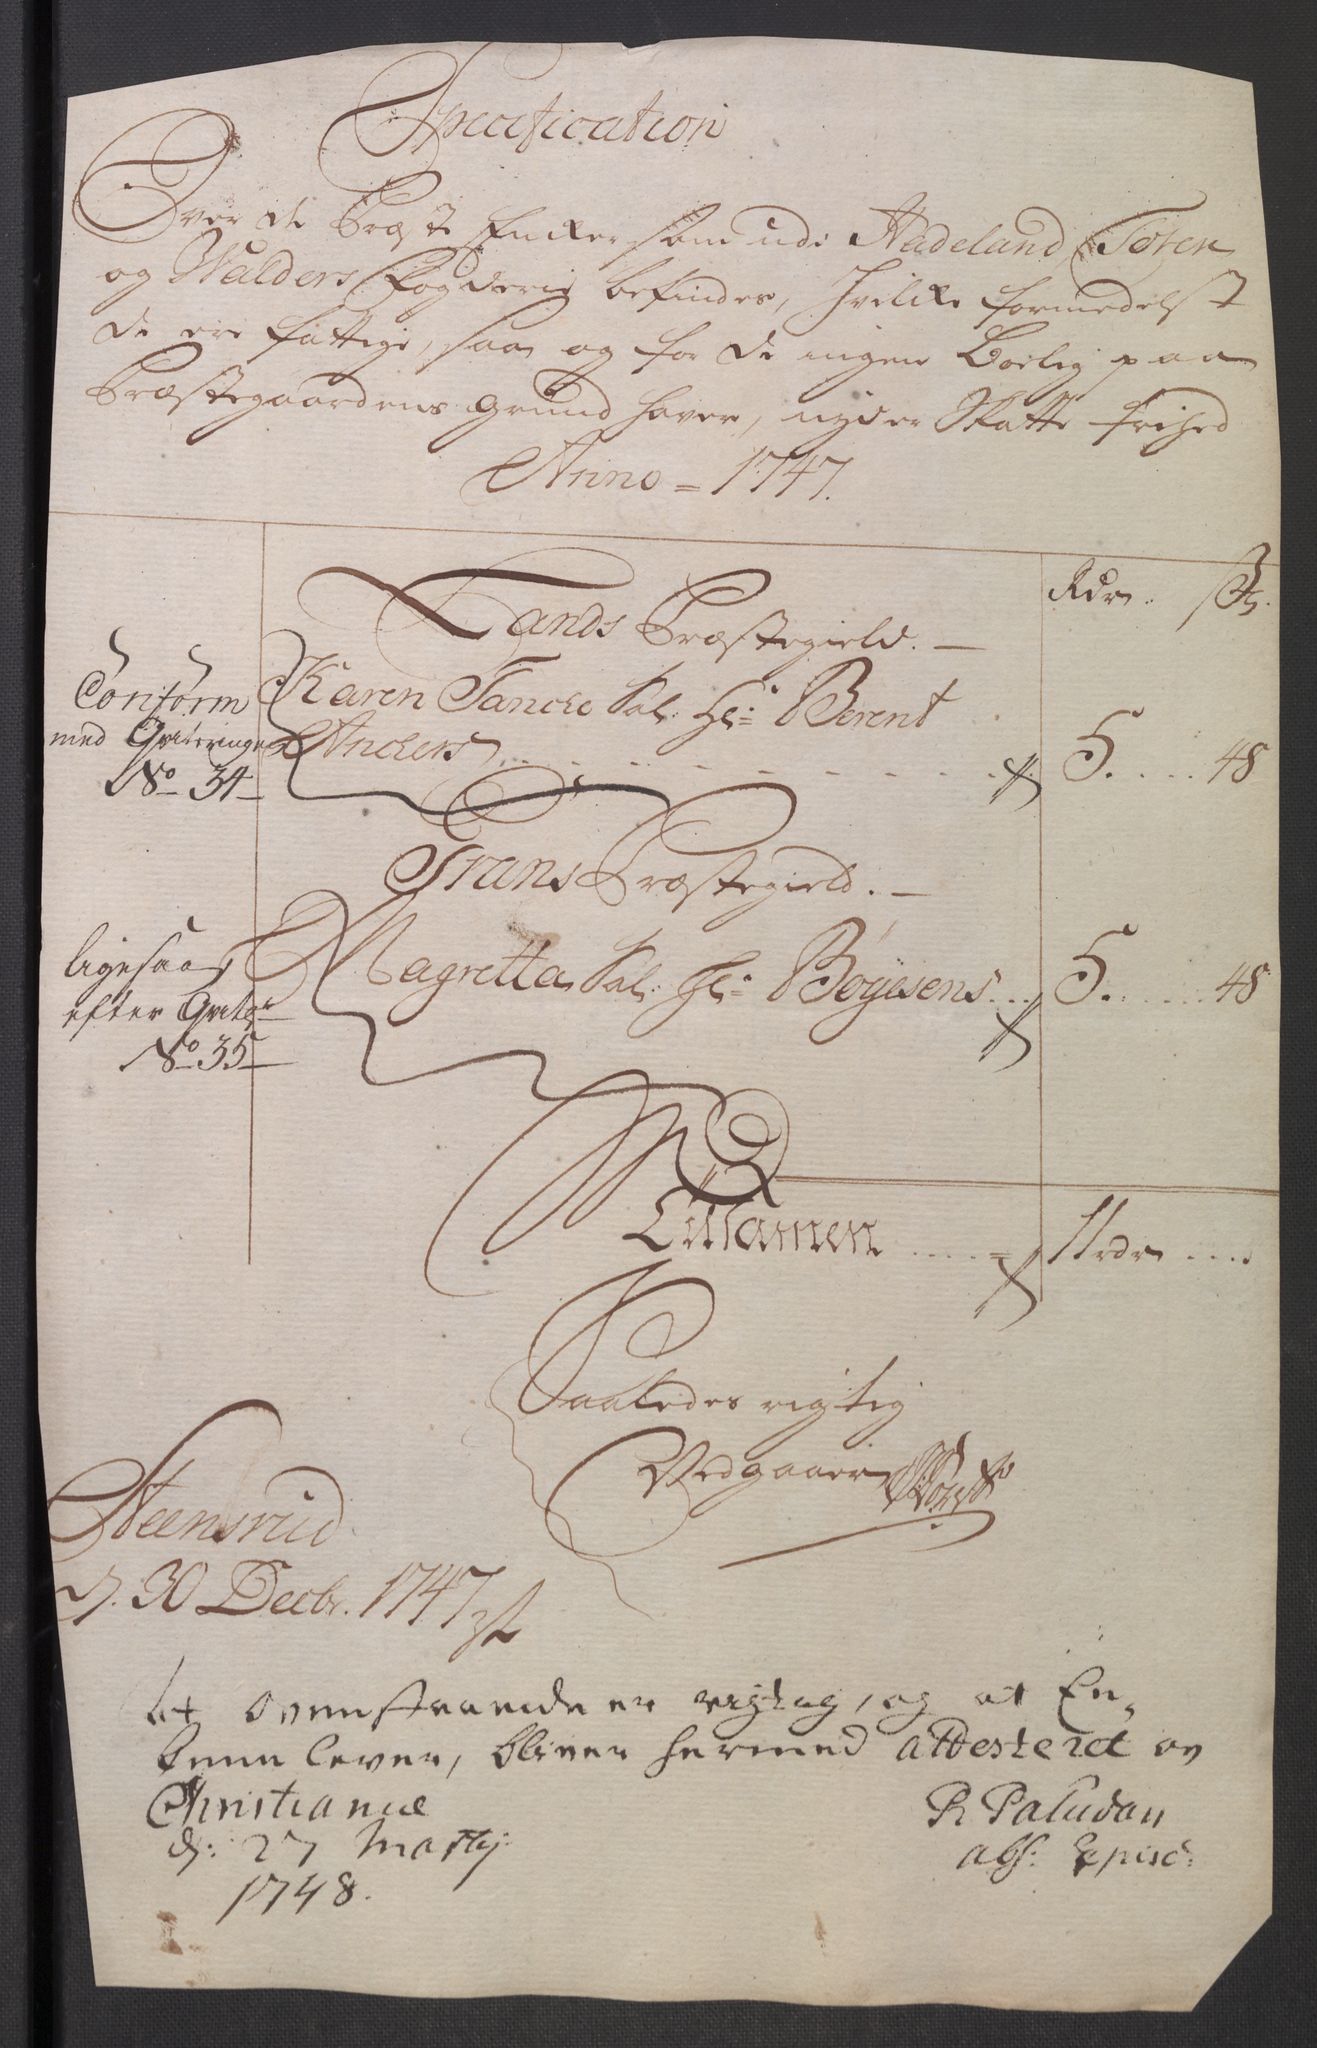 Specification
Over de Præste Encker som udi Hadeland Toten
og Walders Fogderie befindes, hvilcke formedelst
de ere fattige, saa og for de ingen Boelig paa
Præstegaardens Grund haver, nyder Skatte frihed
Anno = 1747.
Rdr. ß.
Lands Præstegield. —
Conform
med Qviteringen
No 34
Karen Tancke Sal: Hr: Berent
Anckers 5. 48
Grans Præstegield. —
ligesaa
efter Qvitgr
No 35
Magretta Sal: Hr: Boyesens 5. 48
Tilsamen 11 rdr
Saaledes rigtig
Vedgaaer
Steensrud
d. 30 Decbr. 1747
At ovenstaaende er rigtig, og at En-
kerne lever, bliver hermed attesteret av
Christianiæ
d: 27 Martij
1748.
P. Paludan
abs: Episc: